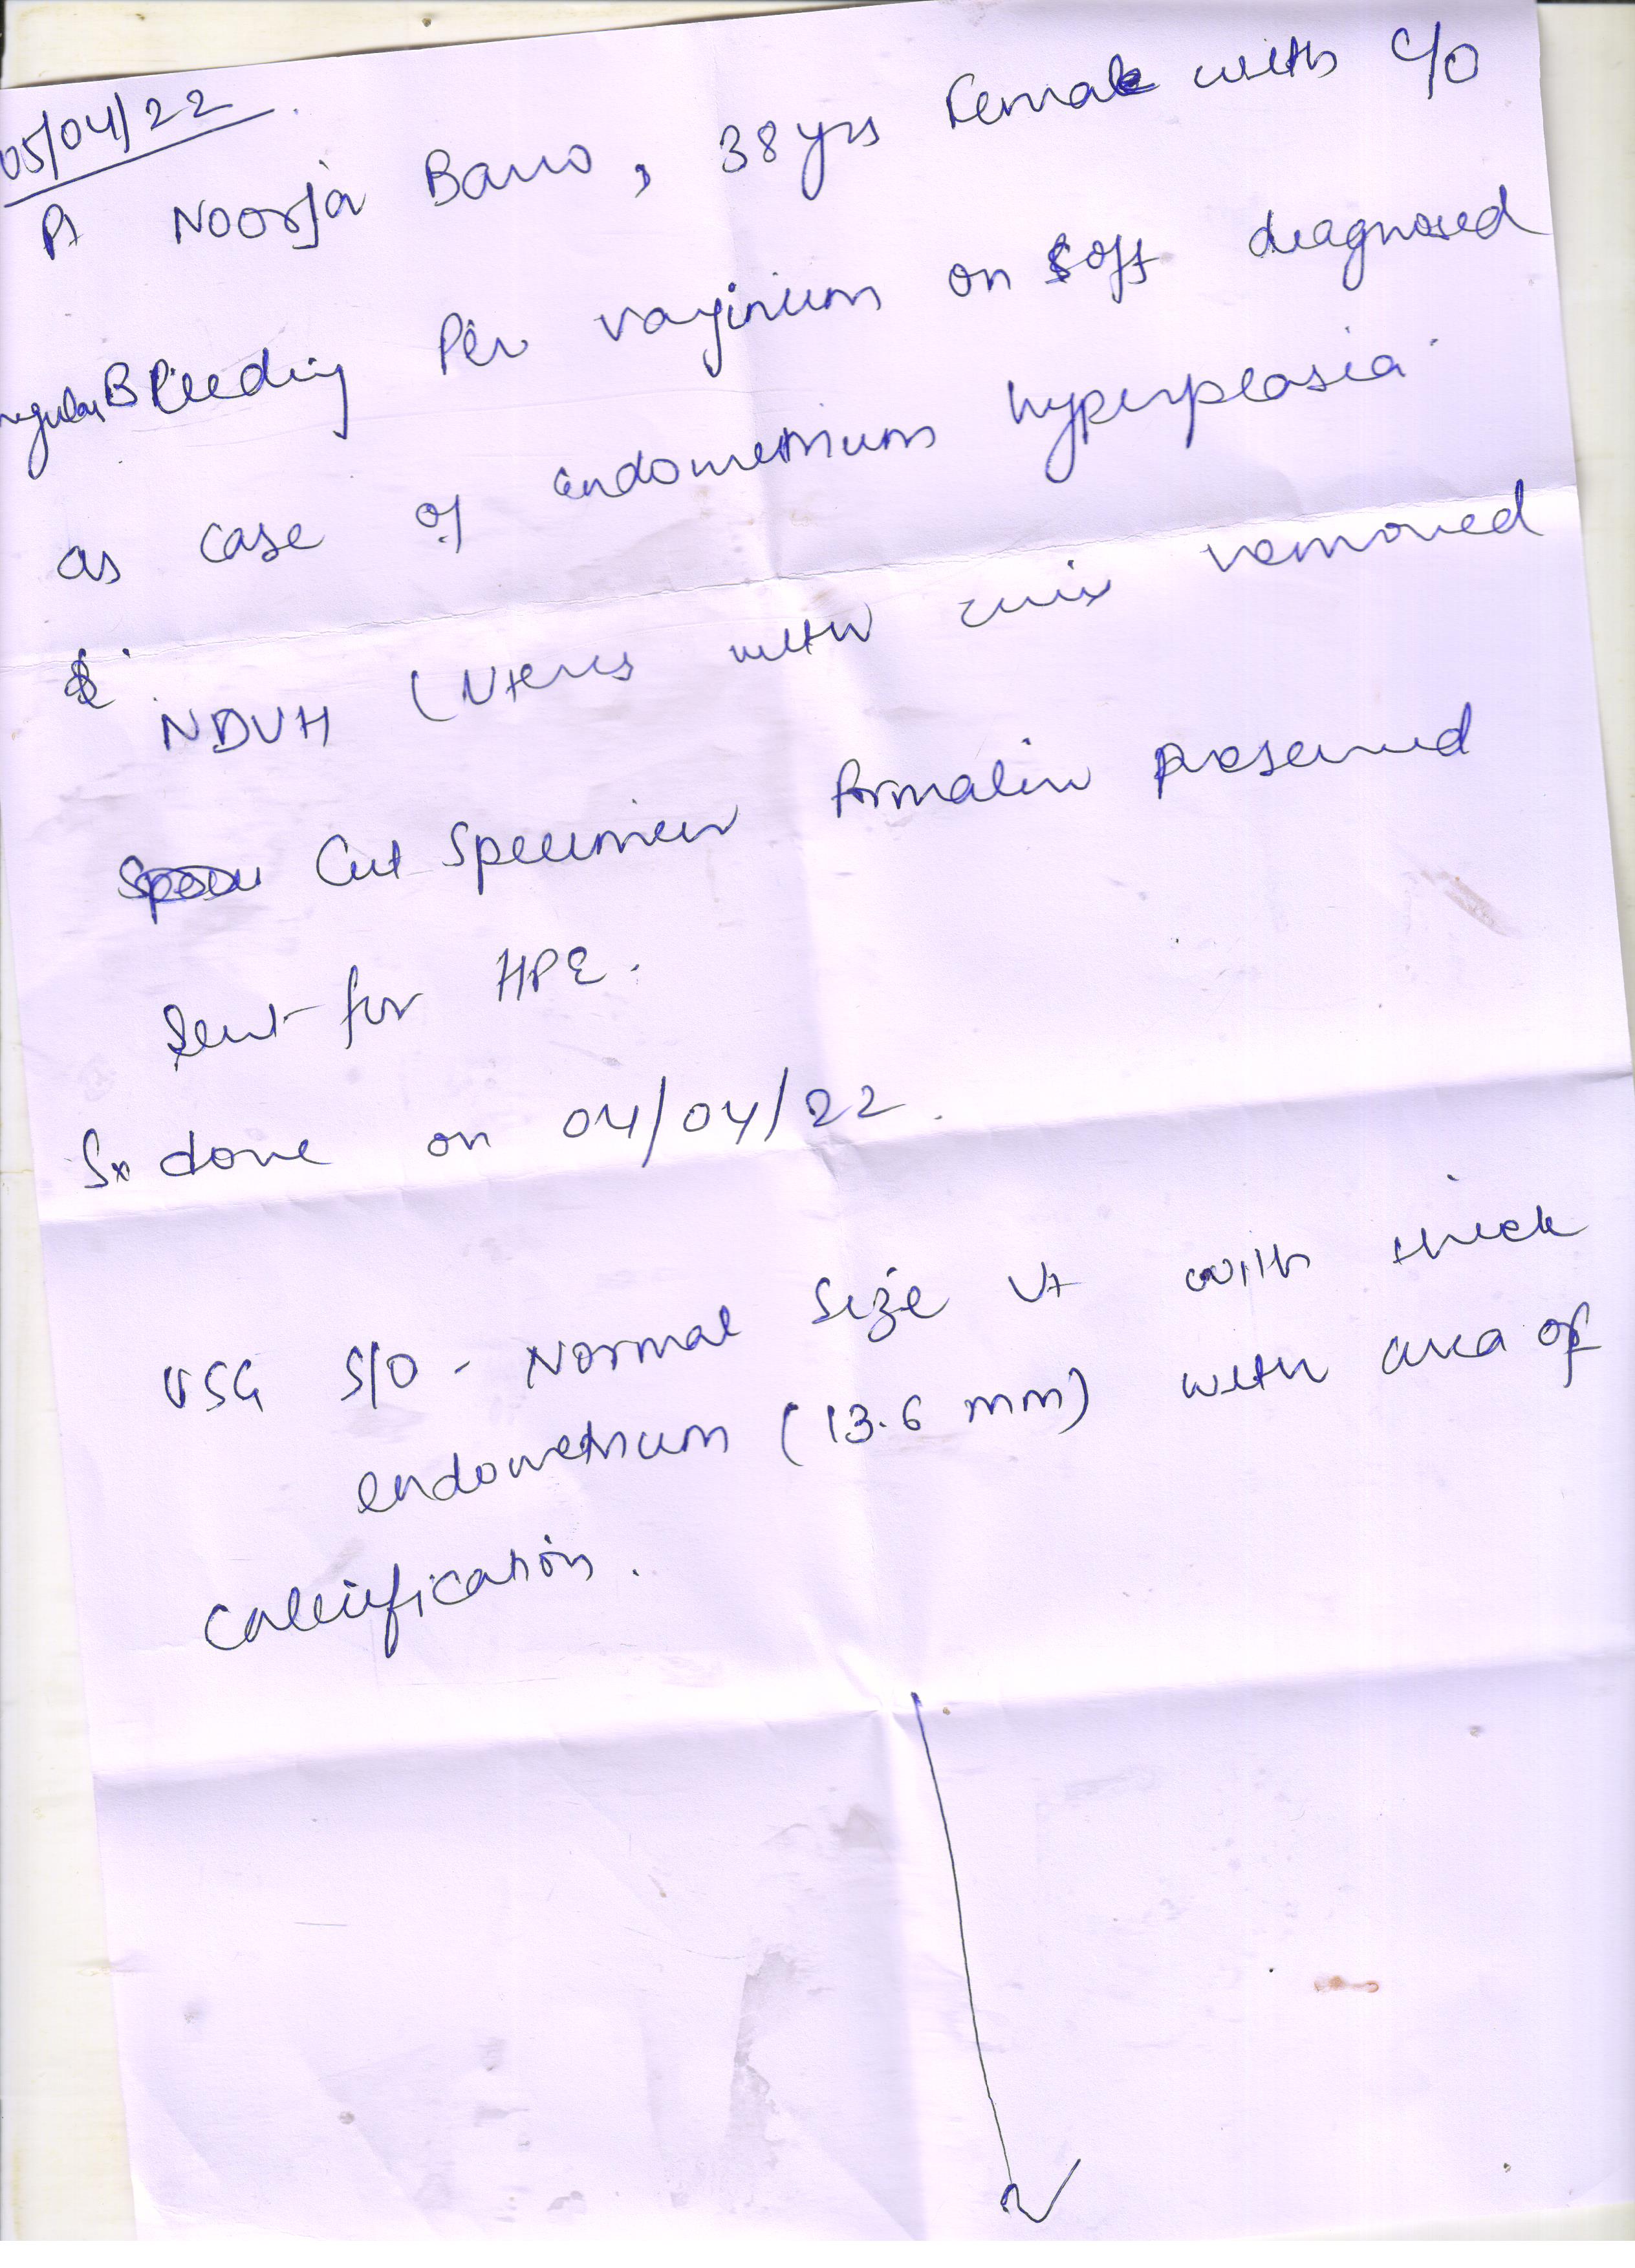 05/04/22
Pt Noorja Bano, 38 yrs Female with c/o
Bleeding Per vaginum on & off diagnosed
as case of endometrium hyperplasia
NDVH (Uterus with cervix removed
Cut Specimen formalin preserved
Sent for HPE.
Sx done on 04/04/22.
USG S/O - Normal Size Ut with thick
endometrium (13.6 mm) with area of
Calcification.